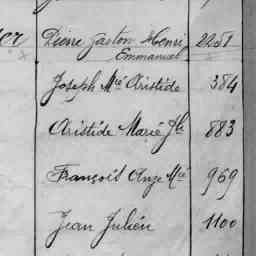 er Pierre Gaston Henri 2251
Emmanuel
Joseph Mie Aristide 384
Aristide Marie Jh 883
François Ange Mie 969
Jean Julien 1100